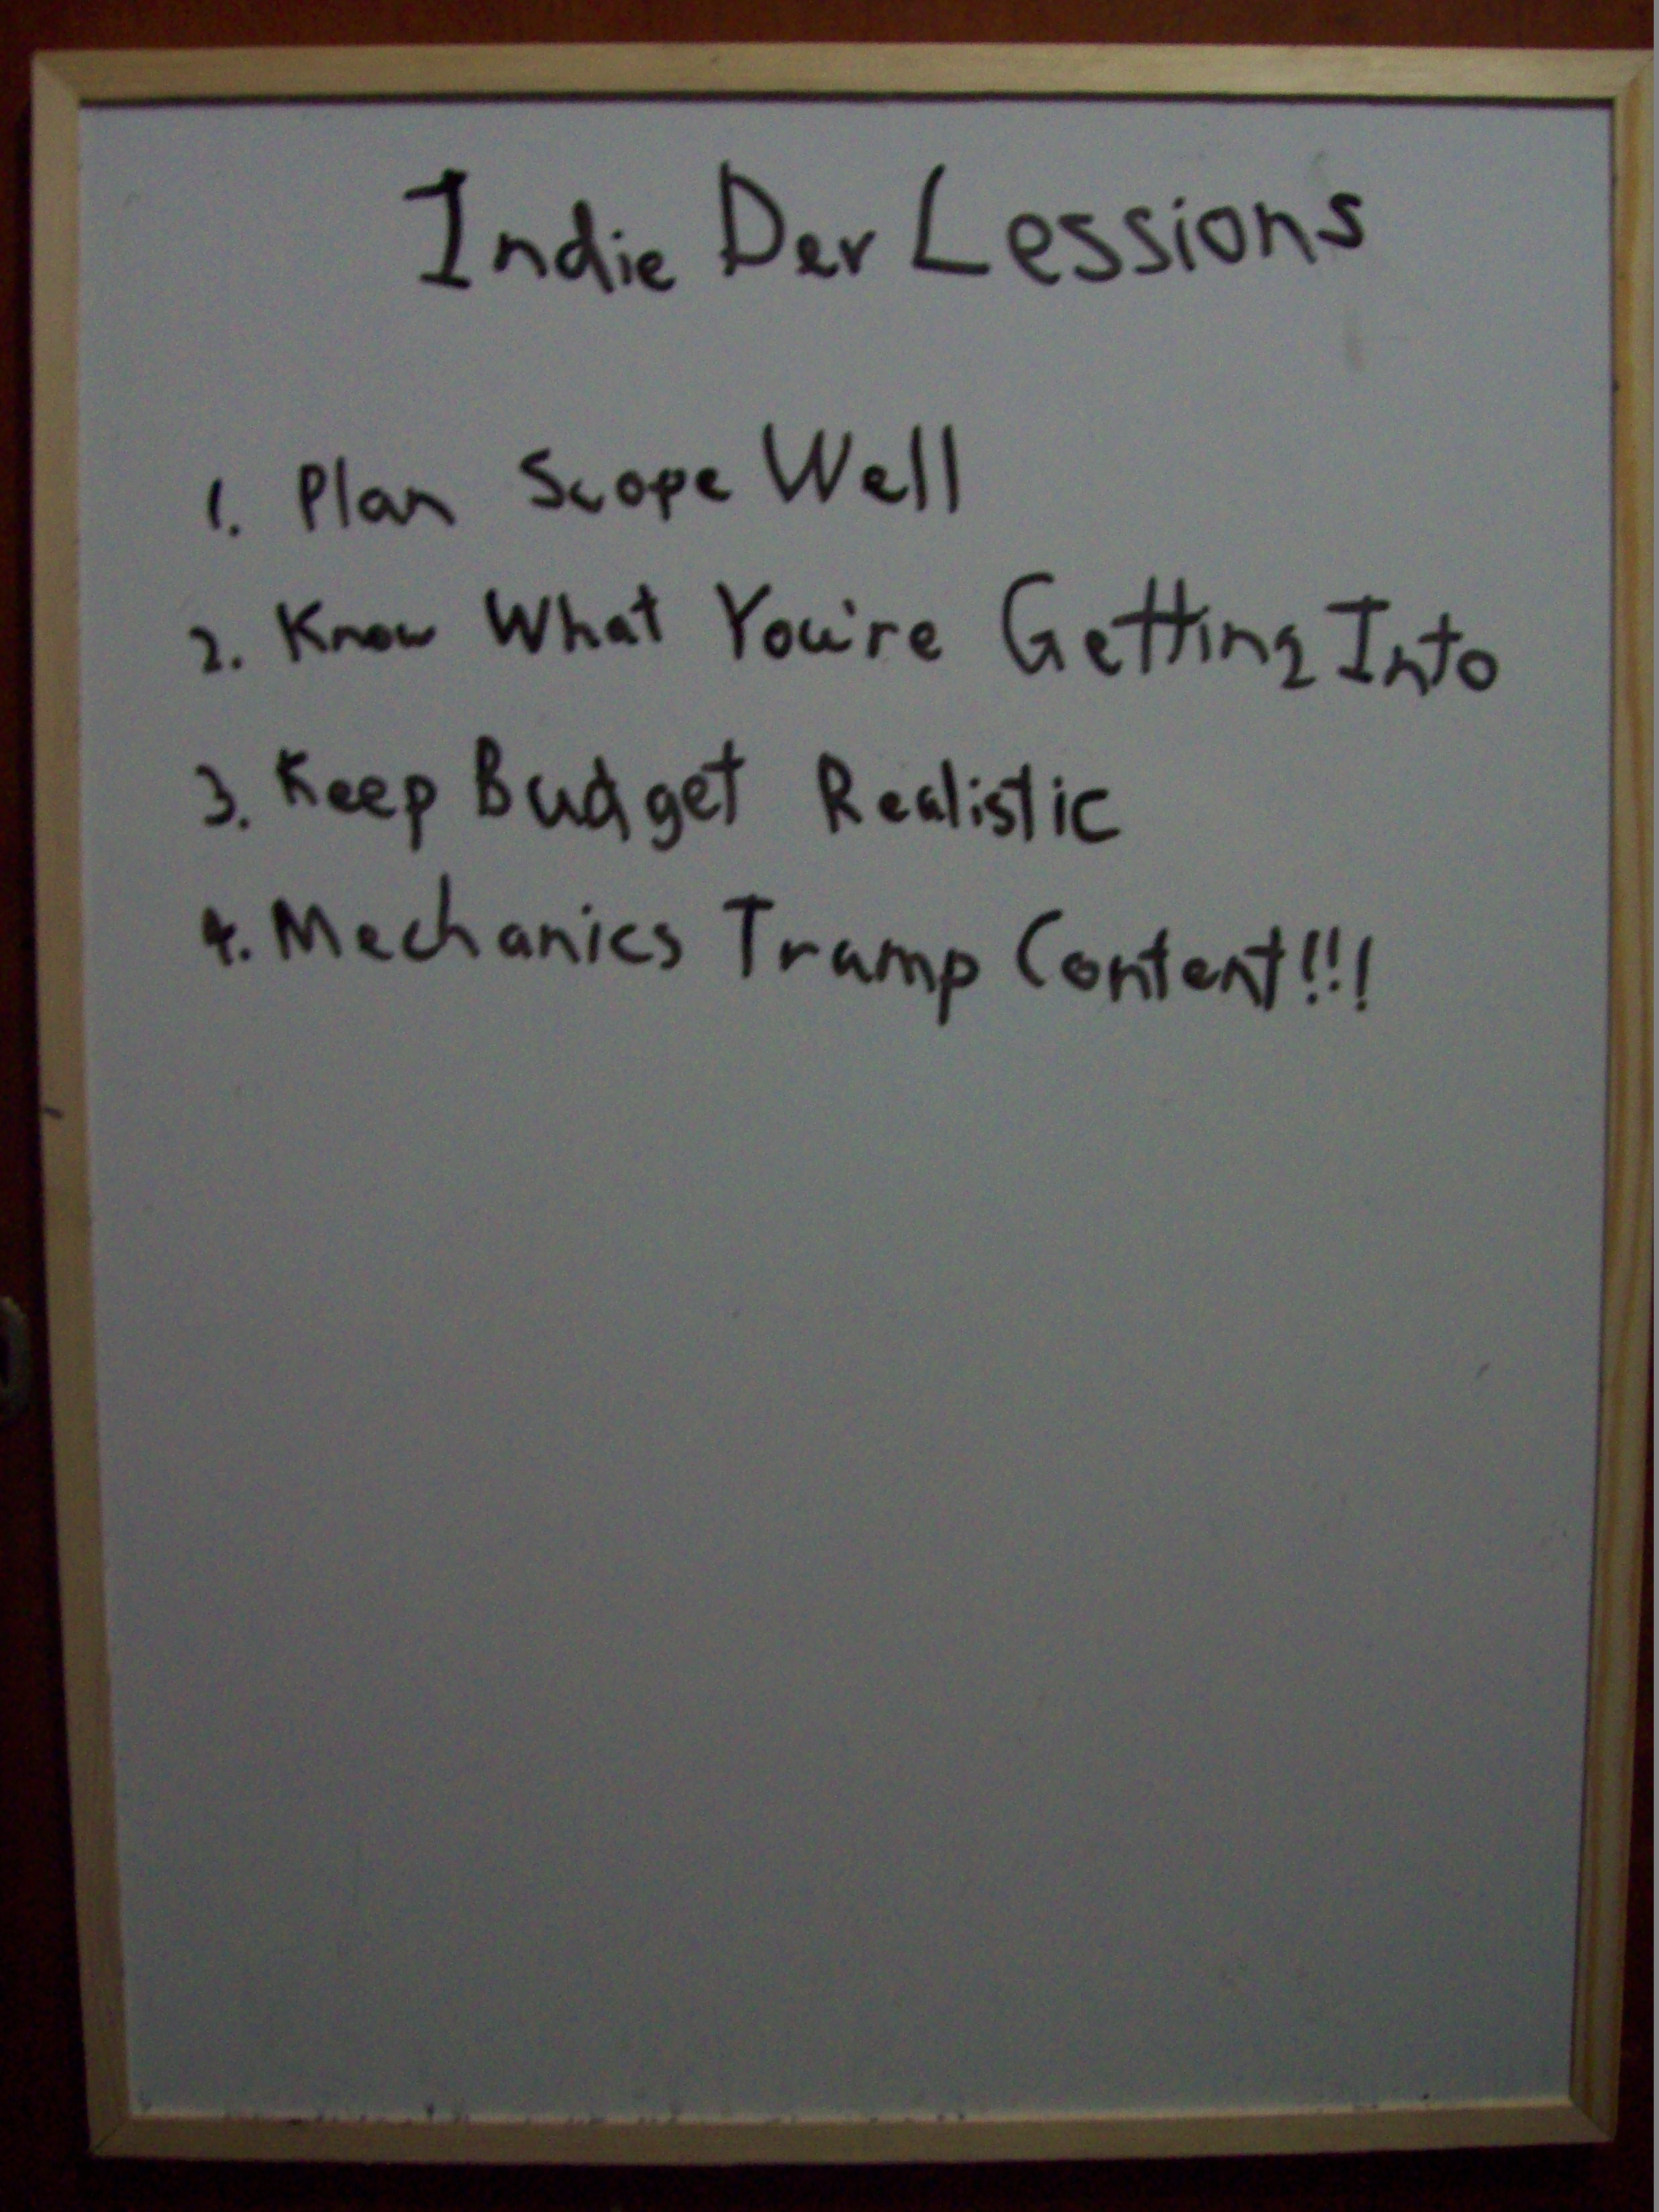 Indie Dev Lessions
1. Plan Scope Well
2. Know What You're Getting Into
3. Keep Budget Realistic
4. Mechanics Tramp Content!!!